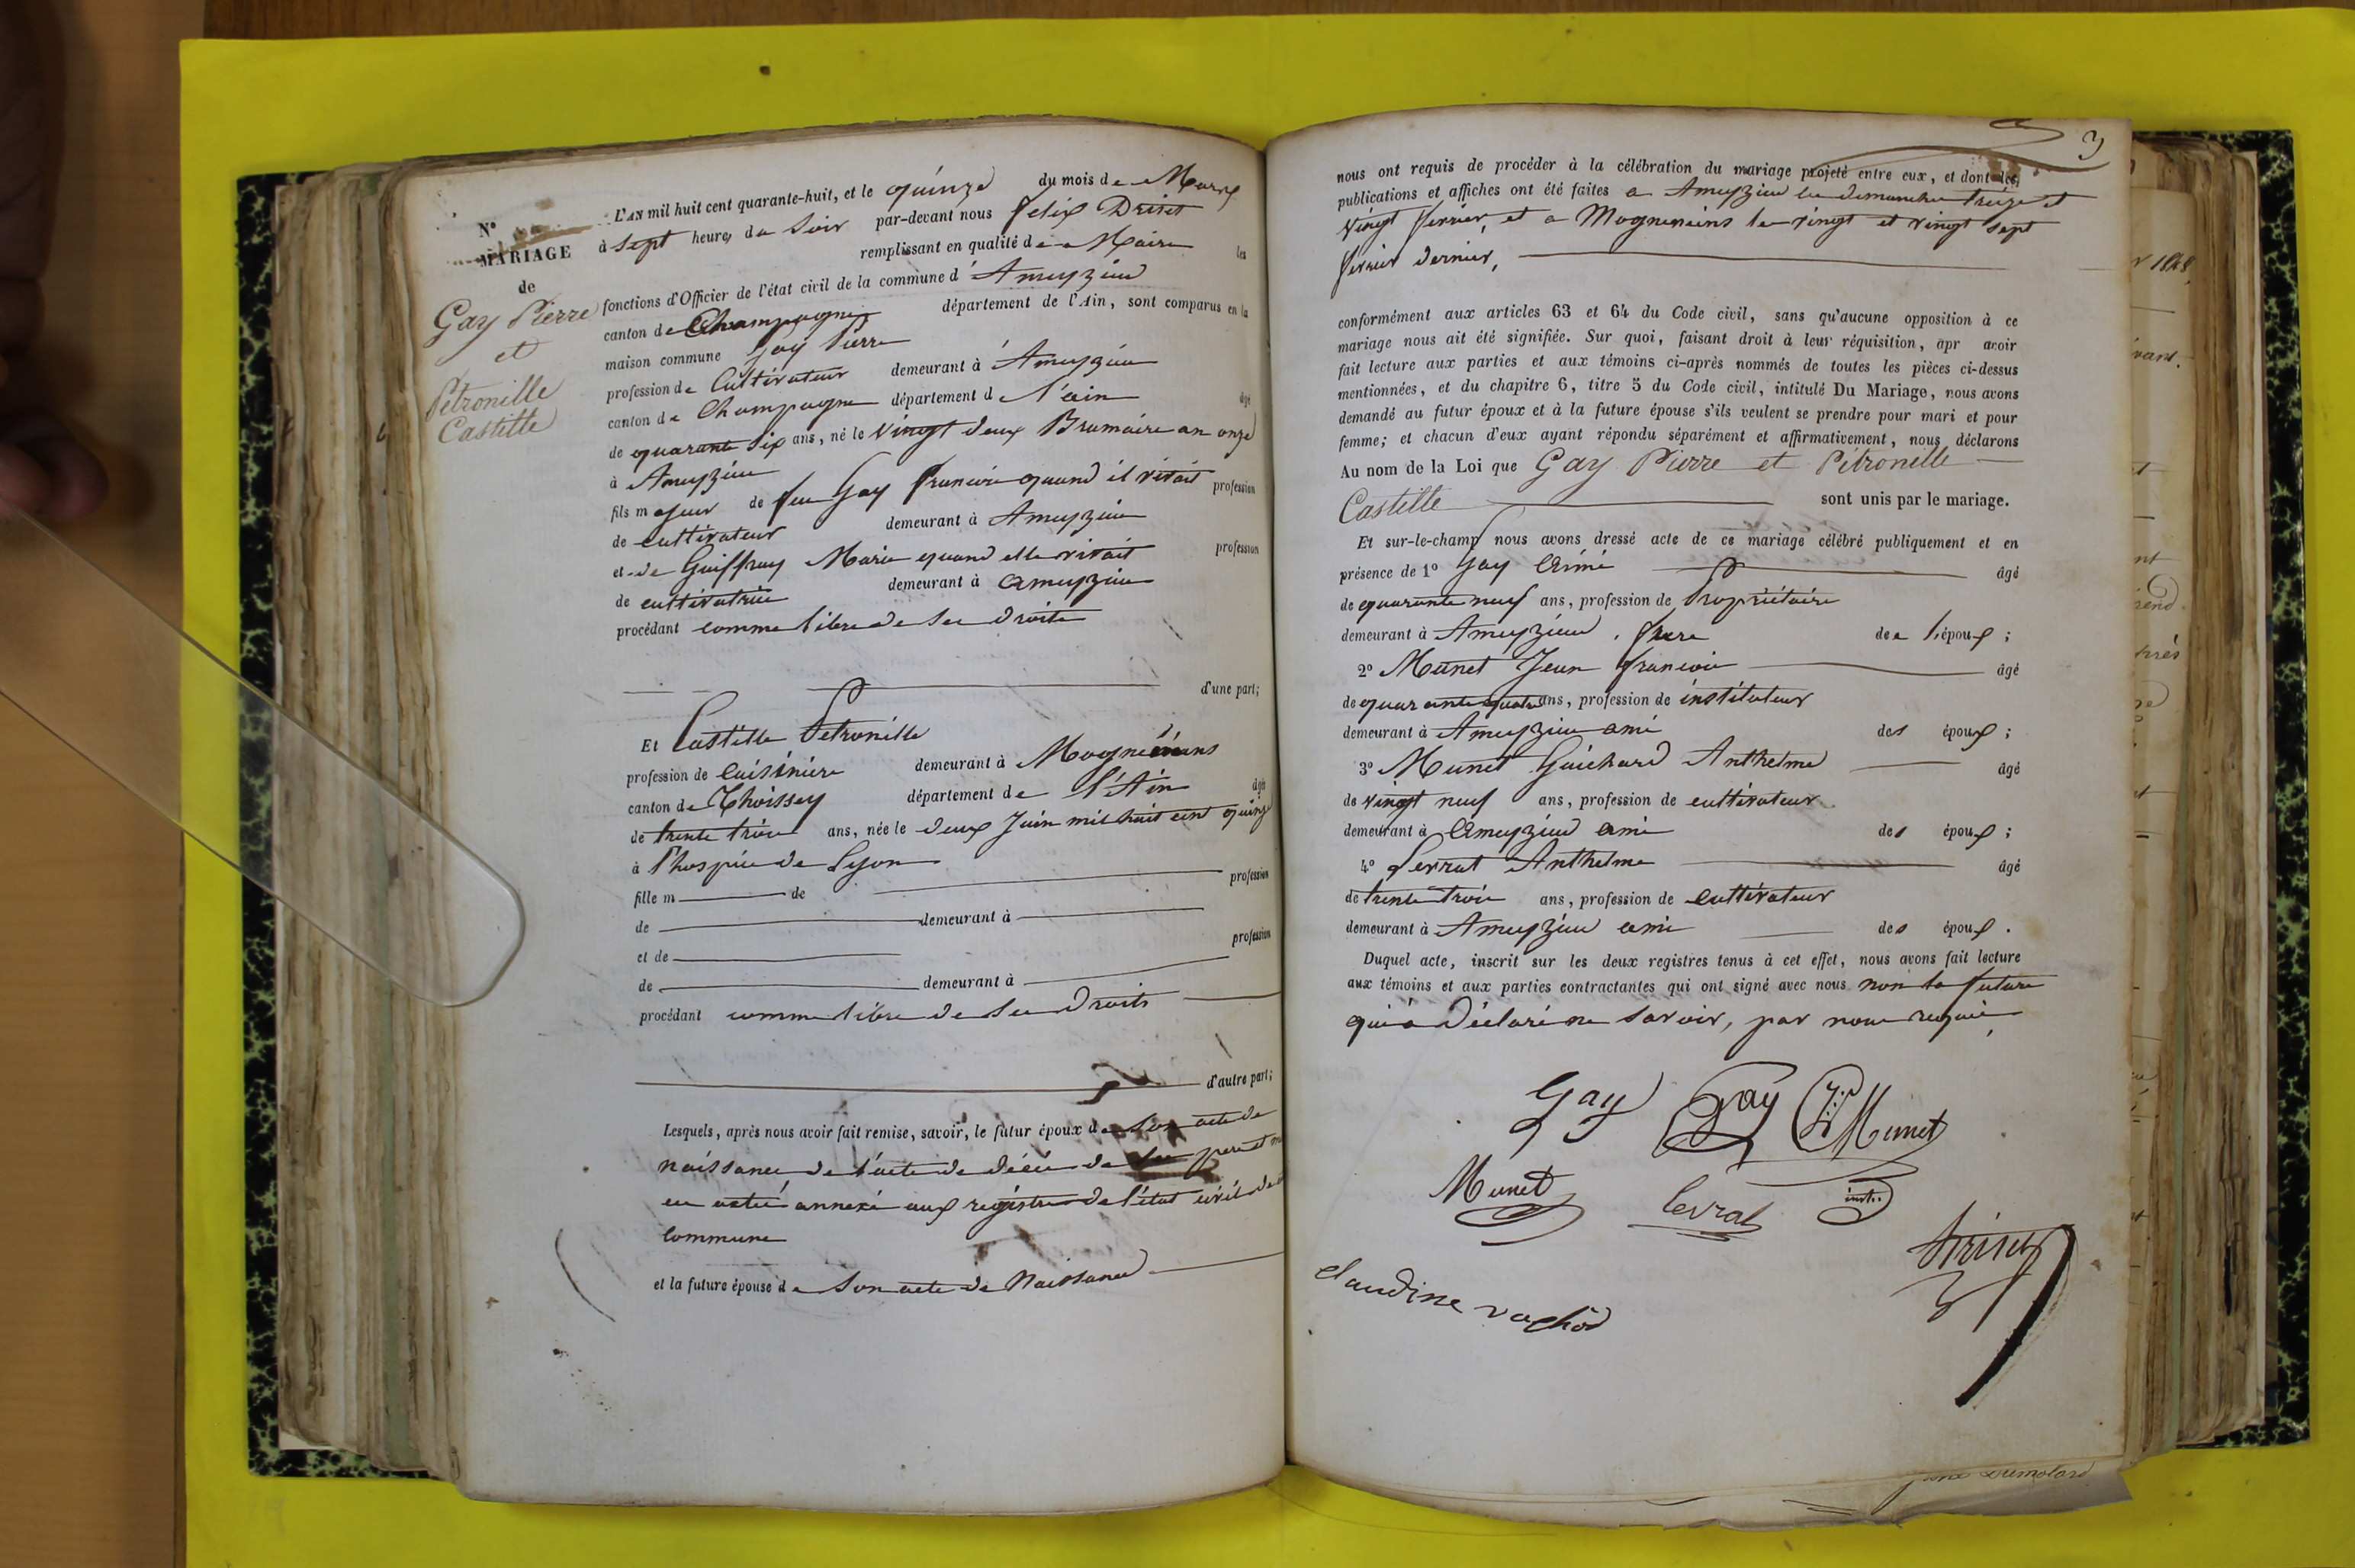 N°
MARIAGE
de
Gay Pierre
et
Pétronille
Castille
L'AN mil huit cent quarante-huit, et le quinze du mois de Mars
à sept heures du Soir par-devant nous felix Driset
remplissant en qualité de Maire les
fonctions d'Officier de l'état civil de la commune d'Ameyzieu
canton de Champagne département de l'Ain, sont comparus en la
maison commune Gay Pierre
profession de Cultivateur demeurant à Ameyzieu
canton de Champagne département de l'ain âgé
de quarante six ans, né le vingt deux Brumaire an onze
à Ameyzieu
fils majeur de feu Gay francois quand il vivait profession
de cultivateur demeurant à Ameyzieu
et de Guiffray Marie quand elle vivait profession
de cultivatrice demeurant à ameyzieu
procédant comme libre de ses droits
d'une part;
Et Castille Petronille
profession de Cuisinière demeurant à Mogneneins
canton de Thoissey département de l'Ain âgée
de trente trois ans, née le deux Juin mil huit cent quinze
à l'hospice de Lyon
fille m de profession
de demeurant à
et de profession
de demeurant à
procédant comme libre de ses Droits
d'autre part;
Lesquels, après nous avoir fait remise, savoir, le futur époux de Son acte de
naissance, de l'acte de décès de ses pere et
ces actes annexé aux registres de l'état civil de
commune
et la future épouse de Son acte de Naissance
3
nous ont requis de procéder à la célébration du mariage projeté entre eux, et dont les
publications et affiches ont été faites a Ameyzieu les dimanches treize et
vingt fevrier, et a Mogneneins le vingt et vingt sept
fevrier dernier,
conformément aux articles 63 et 64 du Code civil, sans qu'aucune opposition à ce
mariage nous ait été signifiée. Sur quoi, faisant droit à leur réquisition, apr avoir
fait lecture aux parties et aux témoins ci-après nommés de toutes les pièces ci-dessus
mentionnées, et du chapitre 6, titre 5 du Code civil, intitulé Du Mariage, nous avons
demandé au futur époux et à la future épouse s'ils veulent se prendre pour mari et pour
femme; et chacun d'eux ayant répondu séparément et affirmativement, nous déclarons
Au nom de la Loi que Gay Pierre et Pétronille
Castille sont unis par le mariage.
Et sur-le-champ nous avons dressé acte de ce mariage célébré publiquement et en
présence de 1° Gay Aimé âgé
de quarante neuf ans, profession de Propriétaire
demeurant à Ameyzieu, frere de l'époux;
2° Munet Jean francois âgé
de quarante quatre ans, profession de instituteur
demeurant à Ameyzieu ami des époux;
3° Munet Guichard Anthelme âgé
de vingt neuf ans, profession de cultivateur
demeurant à Ameyzieu ami des époux;
4° Levrat Anthelme âgé
de trente trois ans, profession de cultivateur
demeurant à Ameyzieu ami des époux.
Duquel acte, inscrit sur les deux registres tenus à cet effet, nous avons fait lecture
aux témoins et aux parties contractantes qui ont signé avec nous non la future
qui a Déclaré ne Savoir, par nous requis,
Gay Gay Munet
Munet levrat inst..
driset
claudine vachod